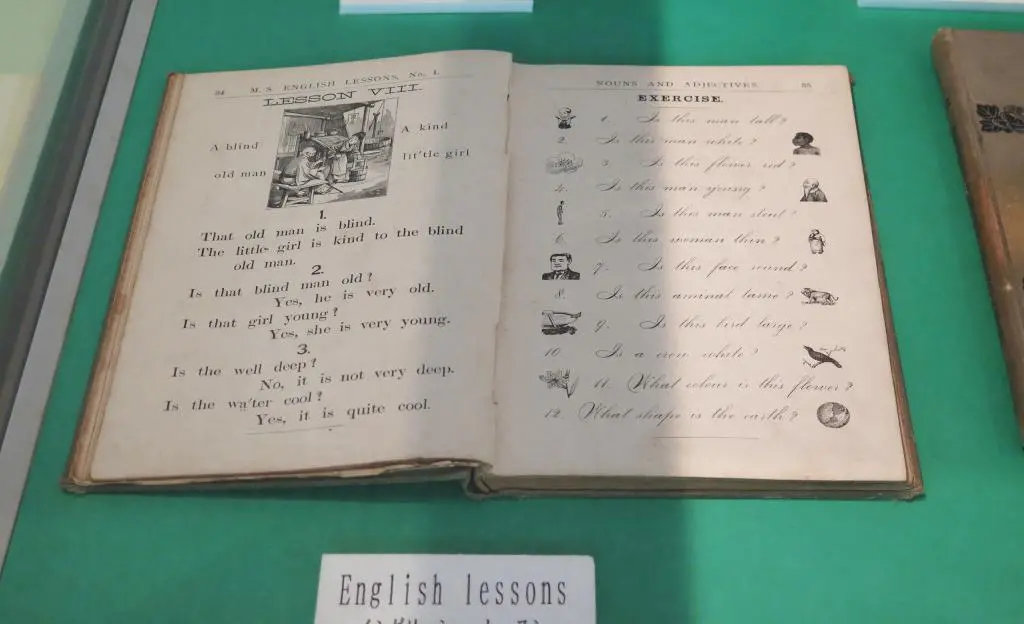 34 M. S. ENGLISH LESSONS, No. 1.
LESSON VIII.
A blind
old man
A kind
lit'tle girl
1.
That old man is blind.
The little girl is kind to the blind
old man.
2.
Is that blind man old?
Yes, he is very old.
Is that girl young?
Yes, she is very young.
3.
Is the well deep?
No, it is not very deep.
Is the wa'ter cool?
Yes, it is quite cool.
NOUNS AND ADJECTIVES. 35
EXERCISE.
1. Is this man tall?
2. Is this man white?
3. Is this flower red?
4. Is this man young?
5. Is this man stout?
6. Is this woman thin?
7. Is this face round?
8. Is this animal tame?
9. Is this bird large?
10. Is a crow white?
11. What colour is this flower?
12. What shape is the earth?
English lessons